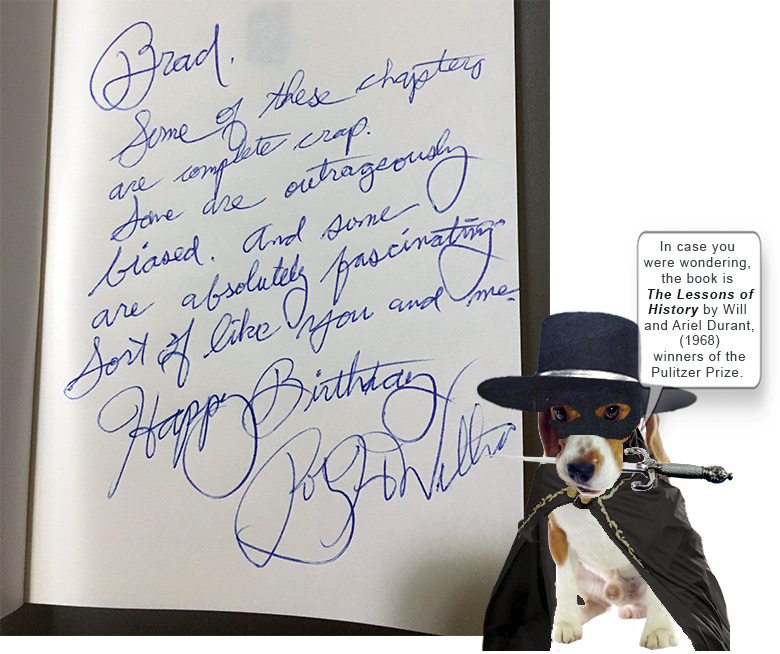 Brad.
Some of these chapters
are complete crap.
Some are outrageously
biased. And some
are absolutely fascinating.
Sort of like you and me.
Happy Birthday
Roy H Williams
In case you
were wondering,
the book is
The Lessons of
History by Will
and Ariel Durant,
(1968)
winners of the
Pulitzer Prize.